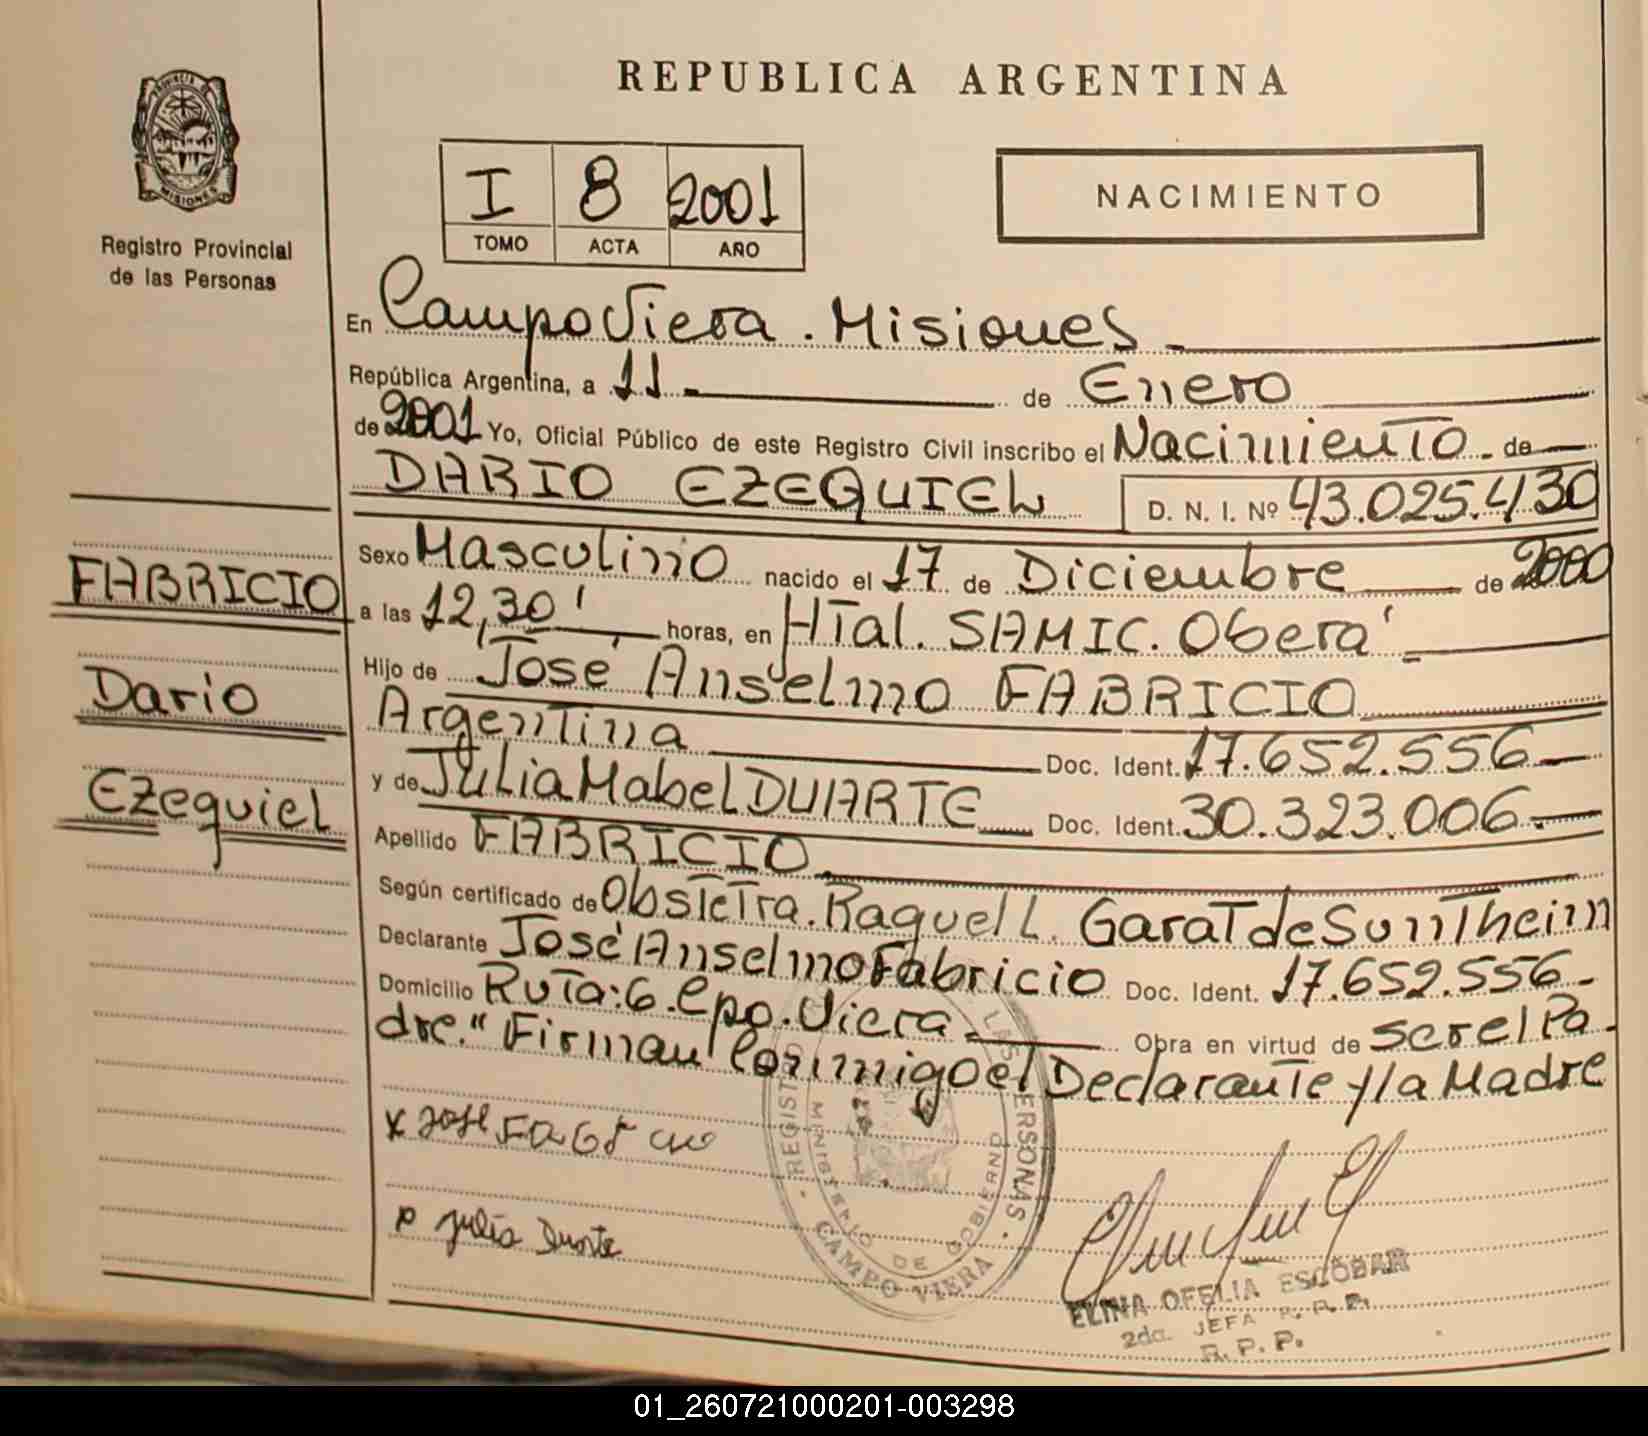 REPUBLICA ARGENTINA
PROVINCIA DE MISIONES
Registro Provincial
de las Personas
I 8 2001
TOMO ACTA AÑO
NACIMIENTO
En Campo Viera. Misiones
República Argentina, a 11 de Enero
de 2001 Yo, Oficial Público de este Registro Civil inscribo el Nacimiento de
DARIO EZEQUIEL D. N. I. Nº 43.025.430
FABRICIO
Dario
Ezequiel
Sexo Masculino nacido el 17 de Diciembre de 2000
a las 12,30' horas, en HTal. SAMIC. Oberá
Hijo de José Anselmo FABRICIO
Argentina Doc. Ident. 17.652.556
y de Julia Mabel DUARTE Doc. Ident. 30.323.006.
Apellido FABRICIO
Según certificado de Obstetra. Raquel L. Garat de Sunntheim
Declarante José Anselmo Fabricio Doc. Ident. 17.652.556
Domicilio Ruta: 6. Cpo. Viera Obra en virtud de ser el Pa-
dre." Firman Conmigo el Declarante y la Madre
x José
Julia Duarte
REGISTRO LAS PERSONAS
MINISTERIO DE GOBIERNO
CAMPO VIERA
ELINA OFELIA ESCOBAR
2da. JEFA R. P. P.
R. P. P.
01_260721000201-003298